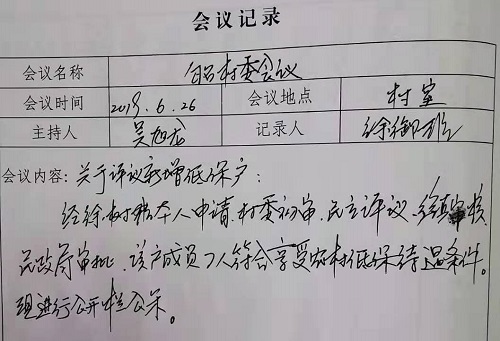 会议记录
会议名称 村委会议
会议时间 2019.6.26 会议地点 村室
主持人 吴旭龙 记录人 徐
会议内容: 关于评议新增低保户:
经徐树 本人申请、村委初审、民主评议、镇 核
民政局审批、该户成员 人符合享受农村低保待遇条件。
现进行公开栏公示。